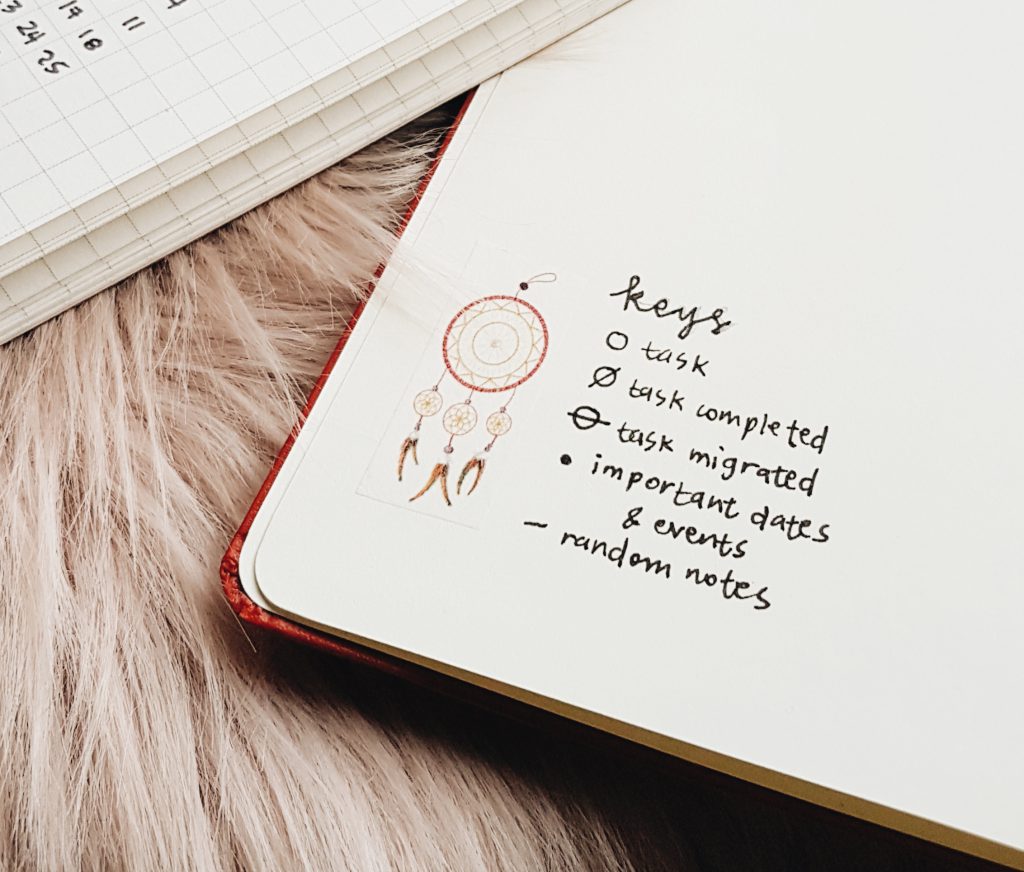 23 24 25
17 18
11
4
keys
O task
Ø task completed
⊖ task migrated
• important dates
& events
– random notes